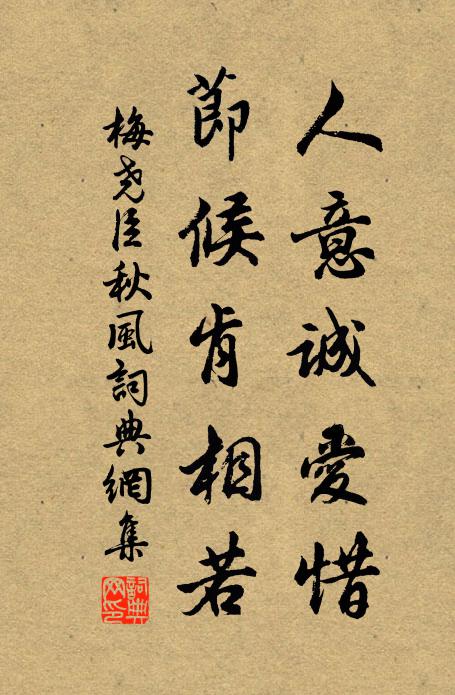 人意誠愛惜
節候肯相若
梅堯臣秋風詞典網集
詞典網印